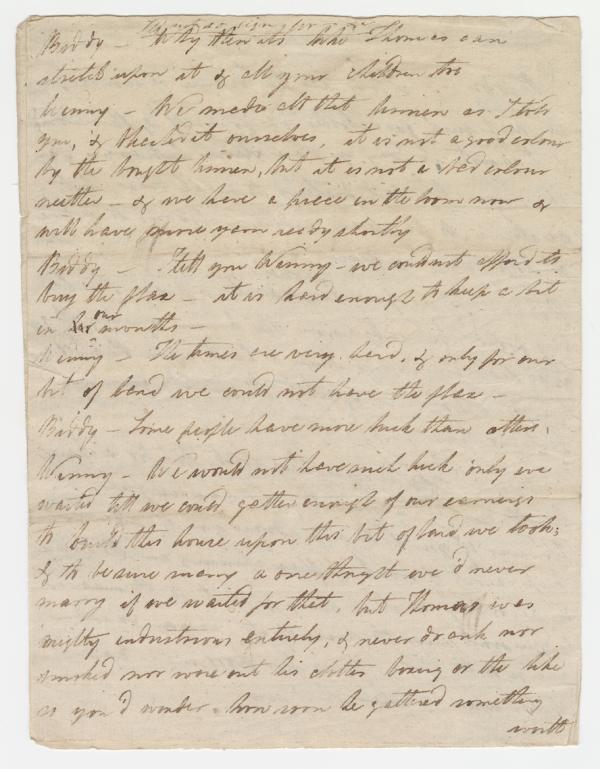 Biddy – Why then its that Thomas can
stretch upon it & all your children too
Winny – We made all that linnen as I told
you, & bleached it ourselves, it is not a good colour
by the bought linnen, but it is not a bad colour
neither – & we have a piece in the loom now &
will have more yarn ready shortly
Biddy – I tell you Winny – we could not afford to
buy the flax – it is hard enough to keep a bit
in our mouths –
Winny – The times are very hard, & only for our
bit of land we could not have the flax –
Biddy – Some people have more luck than others.
Winny – We would not have such luck only we
waited till we could gather enough of our earnings
to build this house upon this bit of land we took;
& to be sure many a one thought we'd never
marry if we waited for that, but Thomas was
mighty industrious entirely, & never drank nor
smoked nor wore out his clothes boxing or the like
so you'd wonder how soon he gathered something
worth